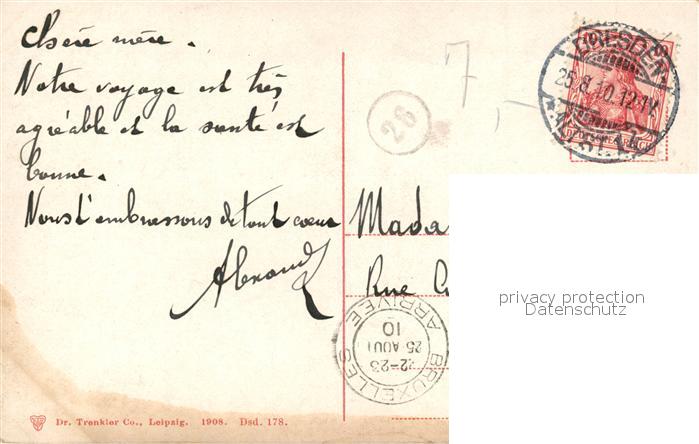 Chère mère.
Notre voyage est très
agréable et la santé est
bonne.
Nous t'embrassons de tout coeur
7,-
26
DRESDEN
25.8.10.12-1V
Mada
Rue
BRUXELLES
22-23
25 AOUT
10
ARRIVEE
privacy protection
Datenschutz
Dr. Trenkler Co., Leipzig. 1908. Dsd. 178.